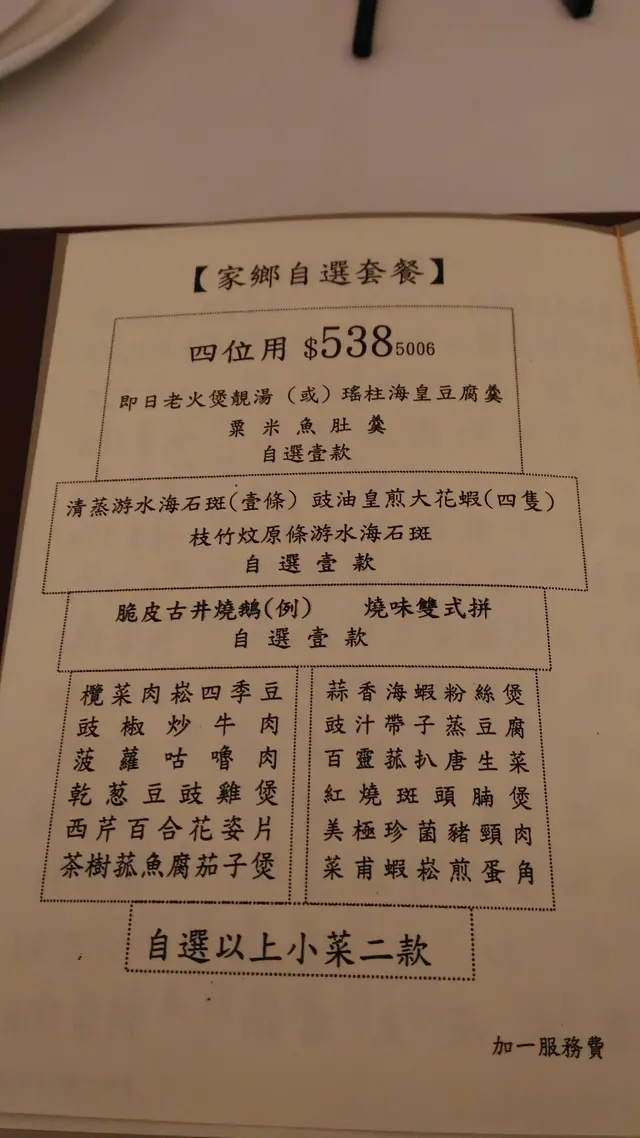 【家鄉自選套餐】
四位用 $538 5006
即日老火煲靚湯（或）瑤柱海皇豆腐羹
粟米魚肚羹
自選壹款
清蒸游水海石斑(壹條) 豉油皇煎大花蝦(四隻)
枝竹炆原條游水海石斑
自選壹款
脆皮古井燒鵝(例) 燒味雙式拼
自選壹款
欖菜肉崧四季豆
豉椒炒牛肉
菠蘿咕嚕肉
乾葱豆豉雞煲
西芹百合花姿片
茶樹菰魚腐茄子煲
蒜香海蝦粉絲煲
豉汁帶子蒸豆腐
百靈菰扒唐生菜
紅燒斑頭腩煲
美極珍菌豬頸肉
菜甫蝦崧煎蛋角
自選以上小菜二款
加一服務費